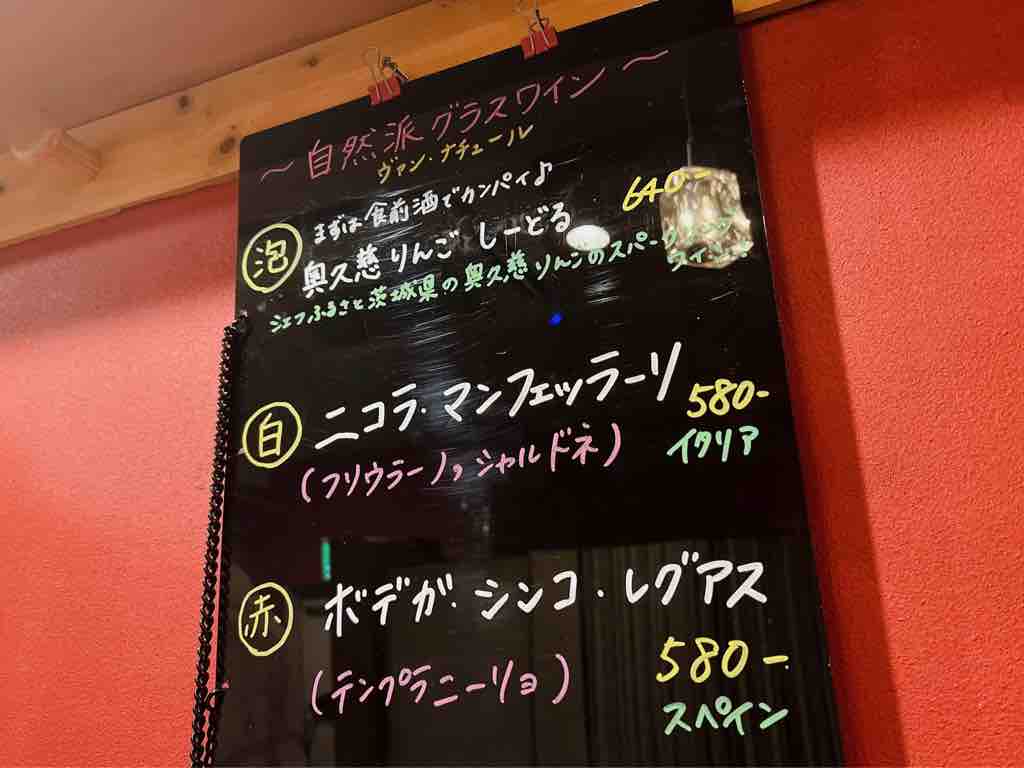 〜自然派グラスワイン〜
ヴァン・ナチュール
泡 まずは食前酒でカンパイ♪
奥久慈りんご しーどる 640-
シェフふるさと茨城県の奥久慈りんごのスパークリング
ワイン
白 ニコラ・マンフェッラーリ 580-
(フリウラーノ,シャルドネ) イタリア
赤 ボデガ・シンコ・レグアス
(テンプラニーリョ) 580-
スペイン